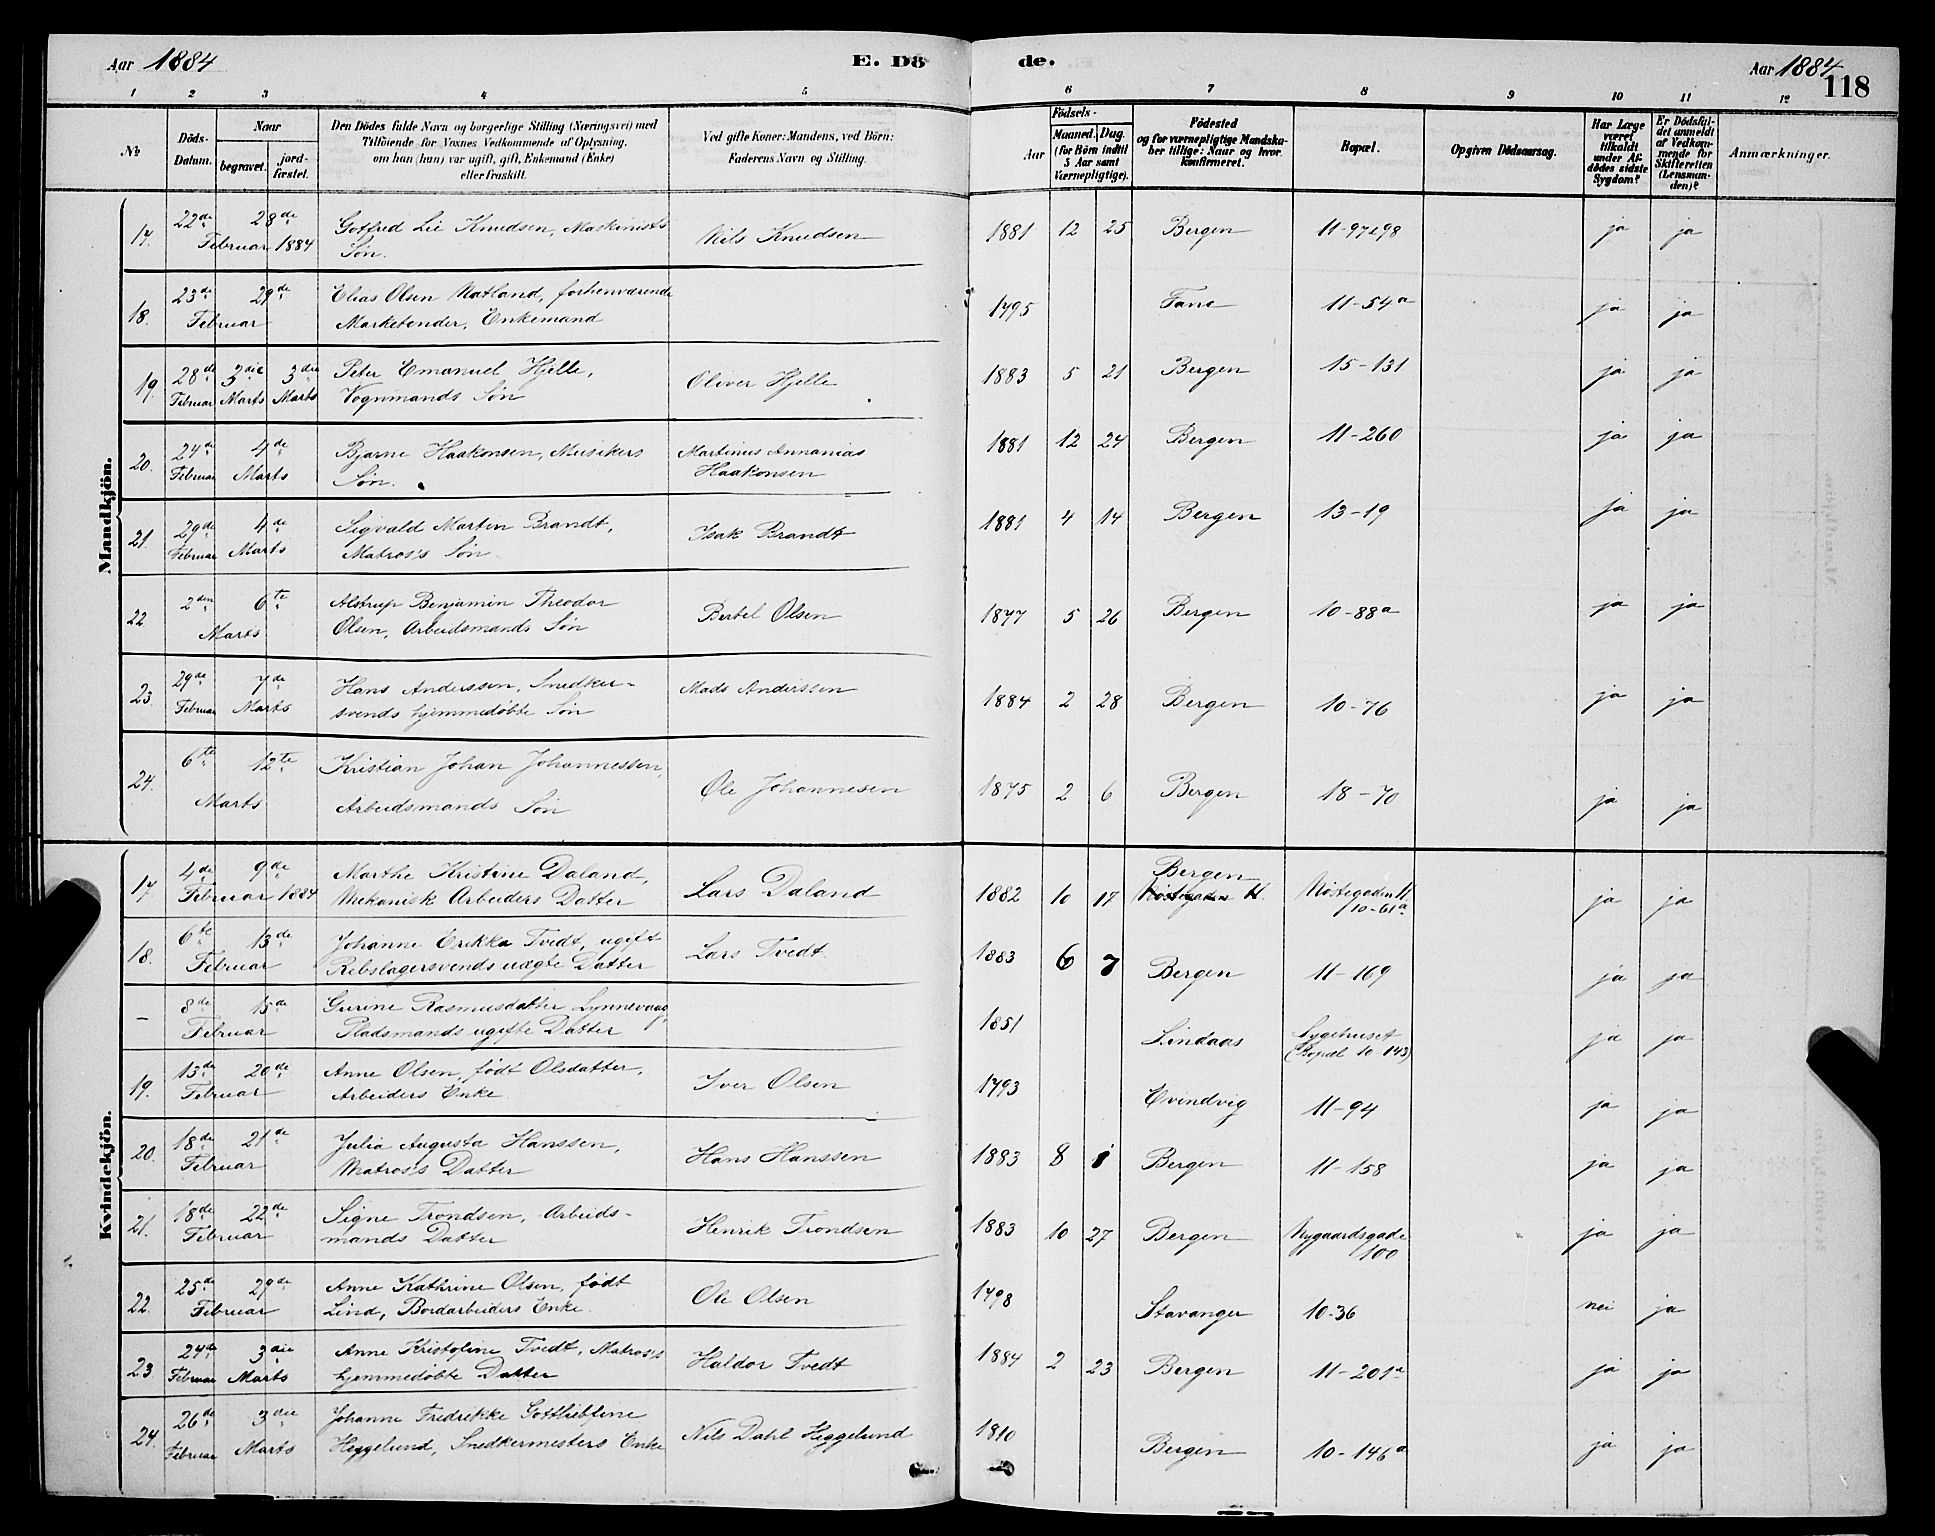 Aar 1884 E. Döde. Aar 1884 118
1 2 3 4 5 6 7 8 9 10 11 12
No
Döds-Datum.
Naar
begravet. jordfæstet.
Den Dödes fulde Navn og borgerlige Stilling (Næringsvei) med
Tilföiende for Voxnes Vedkommende af Oplysning,
om han (hun) var ugift, gift, Enkemand (Enke)
eller fraskilt.
Ved gifte Koner: Mandens, ved Börn:
Faderens Navn og Stilling.
Födsels-
Aar
Maaned. Dag.
(for Börn indtil
5 Aar samt
Værnepligtige).
Födested
og for værnepligtige Mandska-
ber tillige: Naar og hvor
konfirmeret.
Bopæl.
Opgiven Dödsaarsag.
Har Læge
været
tilkaldt
under Af-
dödes sidste
Sygdom?
Er Dödsfal-
det anmeldt
af Vedkom-
mende for
Skifteretten
(Lensman-
den)?
Anmærkninger.
Mandkjön.
17. 22de 28de Februar 1884 Gotfred Lie Knudsen, Maskinists Søn. Niels Knudsen 1881 12 25 Bergen 11-97&98 ja ja
18. 23de 29de Februar Elias Olsen Natland, forhenværende Marketender, Enkemand 1795 Fane 11-54a ja ja
19. 28de Februar 3die Marts 3die Marts Peter Emanuel Hjelle, Vognmands Søn Oliver Hjelle 1883 5 21 Bergen 15-131 ja ja
20. 24de Februar 4de Marts Bjarne Haakonsen, Musikers Søn. Martinus Annanias Haakonsen 1881 12 24 Bergen 11-260 ja ja
21. 29de Februar 4de Marts Sigvald Martin Brandt, Matros's Søn Isak Brandt 1881 4 14 Bergen 13-19 ja ja
22 2den 6te Marts Alstrup Benjamin Theodor Olsen, Arbeidsmands Søn Bertel Olsen 1877 5 26 Bergen 10-88a ja ja
23. 29de Februar 7de Marts Hans Anderssen, Snedker-svends hjemmedøbte Søn Mads Anderssen 1884 2 28 Bergen 10-76 ja ja
24. 6te 12te Marts Kristian Johan Johannessen, Arbeidsmands Søn Ole Johannesen 1875 2 6 Bergen 18-70 ja ja
Kvindekjön.
17. 4de 9de Februar 1884 Marthe Kristine Daland, Mekanisk Arbeiders Datter Lars Daland 1882 10 17 Bergen Nøstegaden 11/10-61a ja ja
18. 6te 13de Februar Johanne Erikka Tvedt, ugift Rebslagersvends uægte Datter Lars Tvedt 1883 6 7 Bergen 11-169 ja ja
- 8de 15de Februar Gurine Rasmusdatter Lynnevaag, Pladsmands ugifte Datter 1851 Lindaas Sygehuset (Bopæl 10-143) ja ja
19. 13de 20de Februar Anne Olsen, født Olsdatter, Arbeiders Enke Iver Olsen 1793 Evindvig 11-94 ja ja
20. 18de 21de Februar Julia Augusta Hanssen, Matros's Datter Hans Hanssen 1883 8 1 Bergen 11-158 ja ja
21. 18de 22de Februar Signe Trondsen, Arbeids-mands Datter Henrik Trondsen 1883 10 27 Bergen Nygaardsgade 100 ja ja
22. 25de 29de Februar Anne Kathrine Olsen, født Lind, Bordarbeiders Enke. Ole Olsen 1798 Stavanger 10-36 nei ja
23. 24de Februar 3die Marts Anne Kristofine Tvedt, Matros's hjemmedøbte Datter Haldor Tvedt 1884 2 23 Bergen 11-201a ja ja
24. 26de Februar 3die Marts Johanne Fredrikke Gottliebfine Heggelund, Snedkermesters Enke Nils Dahl Heggelund 1810 Bergen 10-146a ja ja